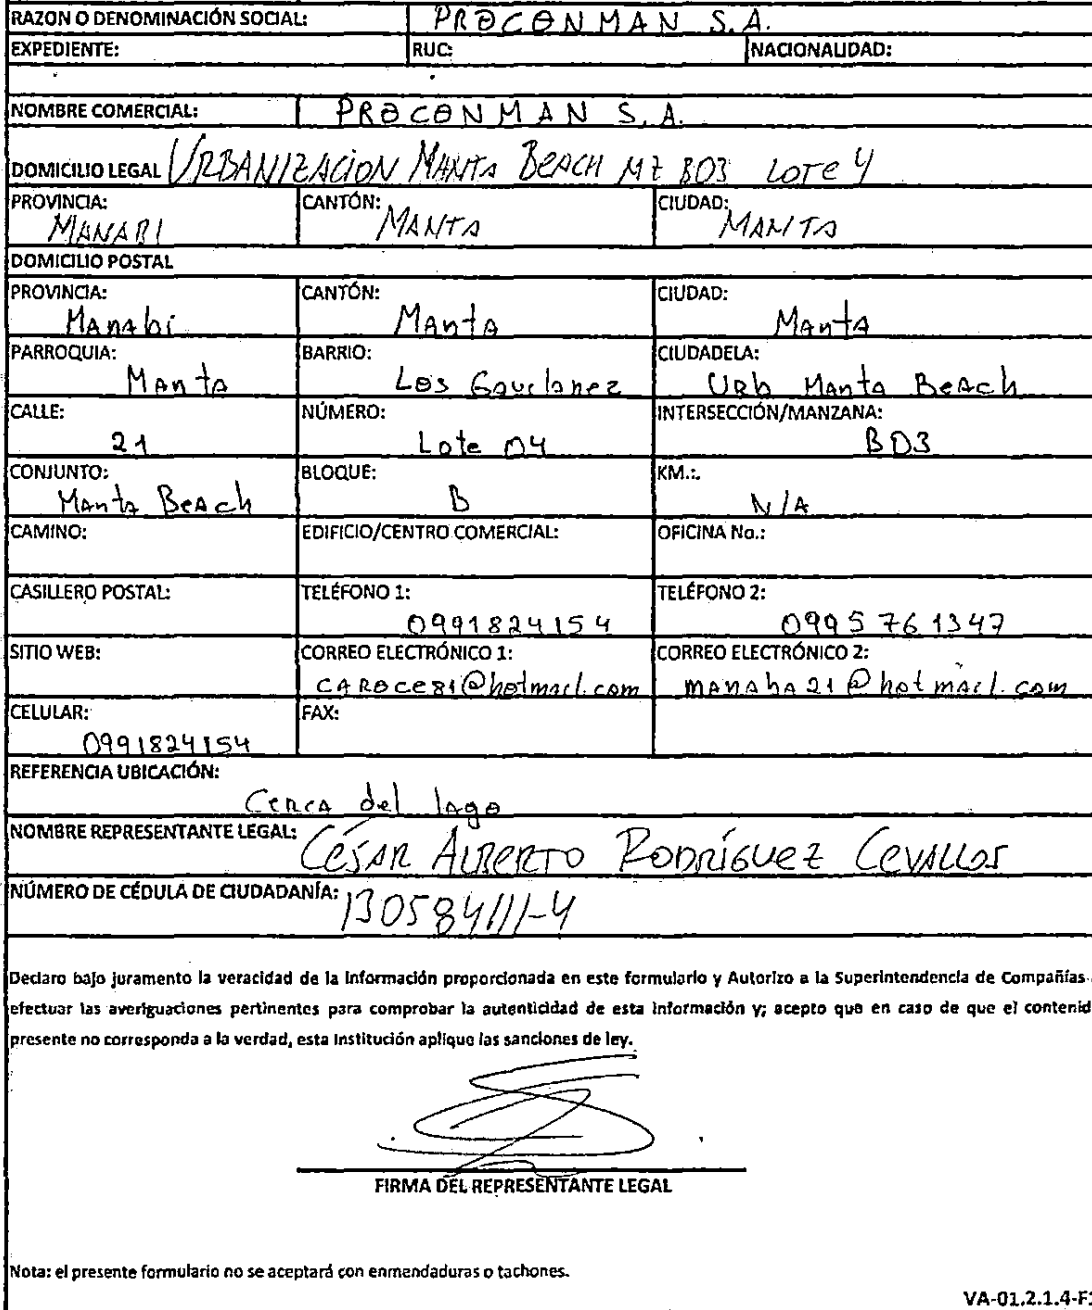 RAZON O DENOMINACIÓN SOCIAL: PROCONMAN S.A.
EXPEDIENTE: RUC: NACIONALIDAD:
NOMBRE COMERCIAL: PROCONMAN S.A.
DOMICILIO LEGAL URBANIZACION MANTA BEACH MZ B03 LOTE 4
PROVINCIA: MANABI CANTÓN: MANTA CIUDAD: MANTA
DOMICILIO POSTAL
PROVINCIA: Manabí CANTÓN: Manta CIUDAD: Manta
PARROQUIA: Manta BARRIO: Los CIUDADELA: Urb Manta Beach
CALLE: 21 NÚMERO: Lote 04 INTERSECCIÓN/MANZANA: B03
CONJUNTO: Manta Beach BLOQUE: B KM.: N/A
CAMINO: EDIFICIO/CENTRO COMERCIAL: OFICINA No.:
CASILLERO POSTAL: TELÉFONO 1: 0991824154 TELÉFONO 2: 0995761347
SITIO WEB: CORREO ELECTRÓNICO 1: CAROCE81@hotmail.com CORREO ELECTRÓNICO 2: manaha21@hotmail.com
CELULAR: 0991824154 FAX:
REFERENCIA UBICACIÓN: Cerca del lago
NOMBRE REPRESENTANTE LEGAL: CÉSAR ALBERTO RODRÍGUEZ CEVALLOS
NÚMERO DE CÉDULA DE CIUDADANÍA: 130584111-4
Declaro bajo juramento la veracidad de la información proporcionada en este formulario y Autorizo a la Superintendencia de Compañías
efectuar las averiguaciones pertinentes para comprobar la autenticidad de esta información y; acepto que en caso de que el contenid
presente no corresponda a la verdad, esta Institución aplique las sanciones de ley.
FIRMA DEL REPRESENTANTE LEGAL
Nota: el presente formulario no se aceptará con enmendaduras o tachones.
VA-01.2.1.4-F